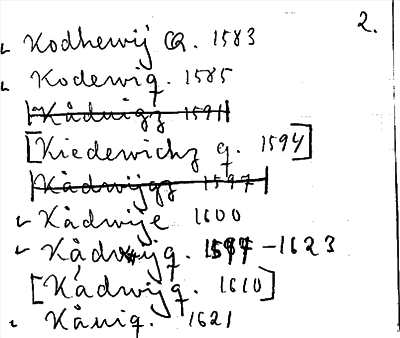 2.
Kodhewij Q. 1583
Kodewiq. 1585
Kåduigz 1591
[Kiedewichz q. 1594]
Kådwijgz 1597
Kådwije 1600
Kådwijq. 1597-1623
[Kådwijq. 1610]
Kåuiq. 1621